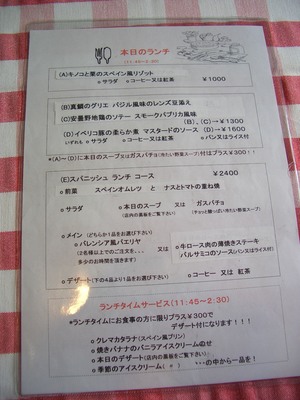 本日のランチ
(11:45~2:30)
(A)キノコと栗のスペイン風リゾット
◦サラダ ◦コーヒー又は紅茶 ¥1000
(B)真鯛のグリエ バジル風味のレンズ豆添え
(C)安曇野地鶏のソテー スモークパプリカ風味
(B)、(C)→¥1300
(D)イベリコ豚の柔らか煮 マスタードのソース (D)→¥1600
いずれも ◦サラダ ◦コーヒー又は紅茶 ◦パン又はライス付
*(A)~(D)に本日のスープ又はガスパチョ(冷たい野菜スープ)付はプラス¥300!!
(E)スパニッシュ ランチ コース ¥2400
◦前菜 スペインオムレツ と ナスとトマトの重ね焼
◦サラダ ◦本日のスープ 又は ガスパチョ
(店内の黒板をご覧下さい) (チョッと酸っぱい冷たい野菜スープ)
◦メイン (どちらか1品をお選び下さい)
◦バレンシア風パエリヤ 又は ◦牛ロース肉の薄焼きステーキ
(2名様以上でのご注文を・・・ バルサミコのソース(パン又はライス付)
多少のお時間を頂きます)
◦デザート(下の4品より1品をお選び下さい) ◦コーヒー 又は 紅茶
ランチタイムサービス(11:45~2:30)
*ランチタイムにお食事の方に限りプラス¥300で
デザート付になります!!!
◦クレマカタラナ(スペイン風プリン)
◦焼きバナナのバニラアイスクリームのせ
◦本日のデザート(店内の黒板をご覧下さい)
◦季節のアイスクリーム( ) ・・・の中から一品を!